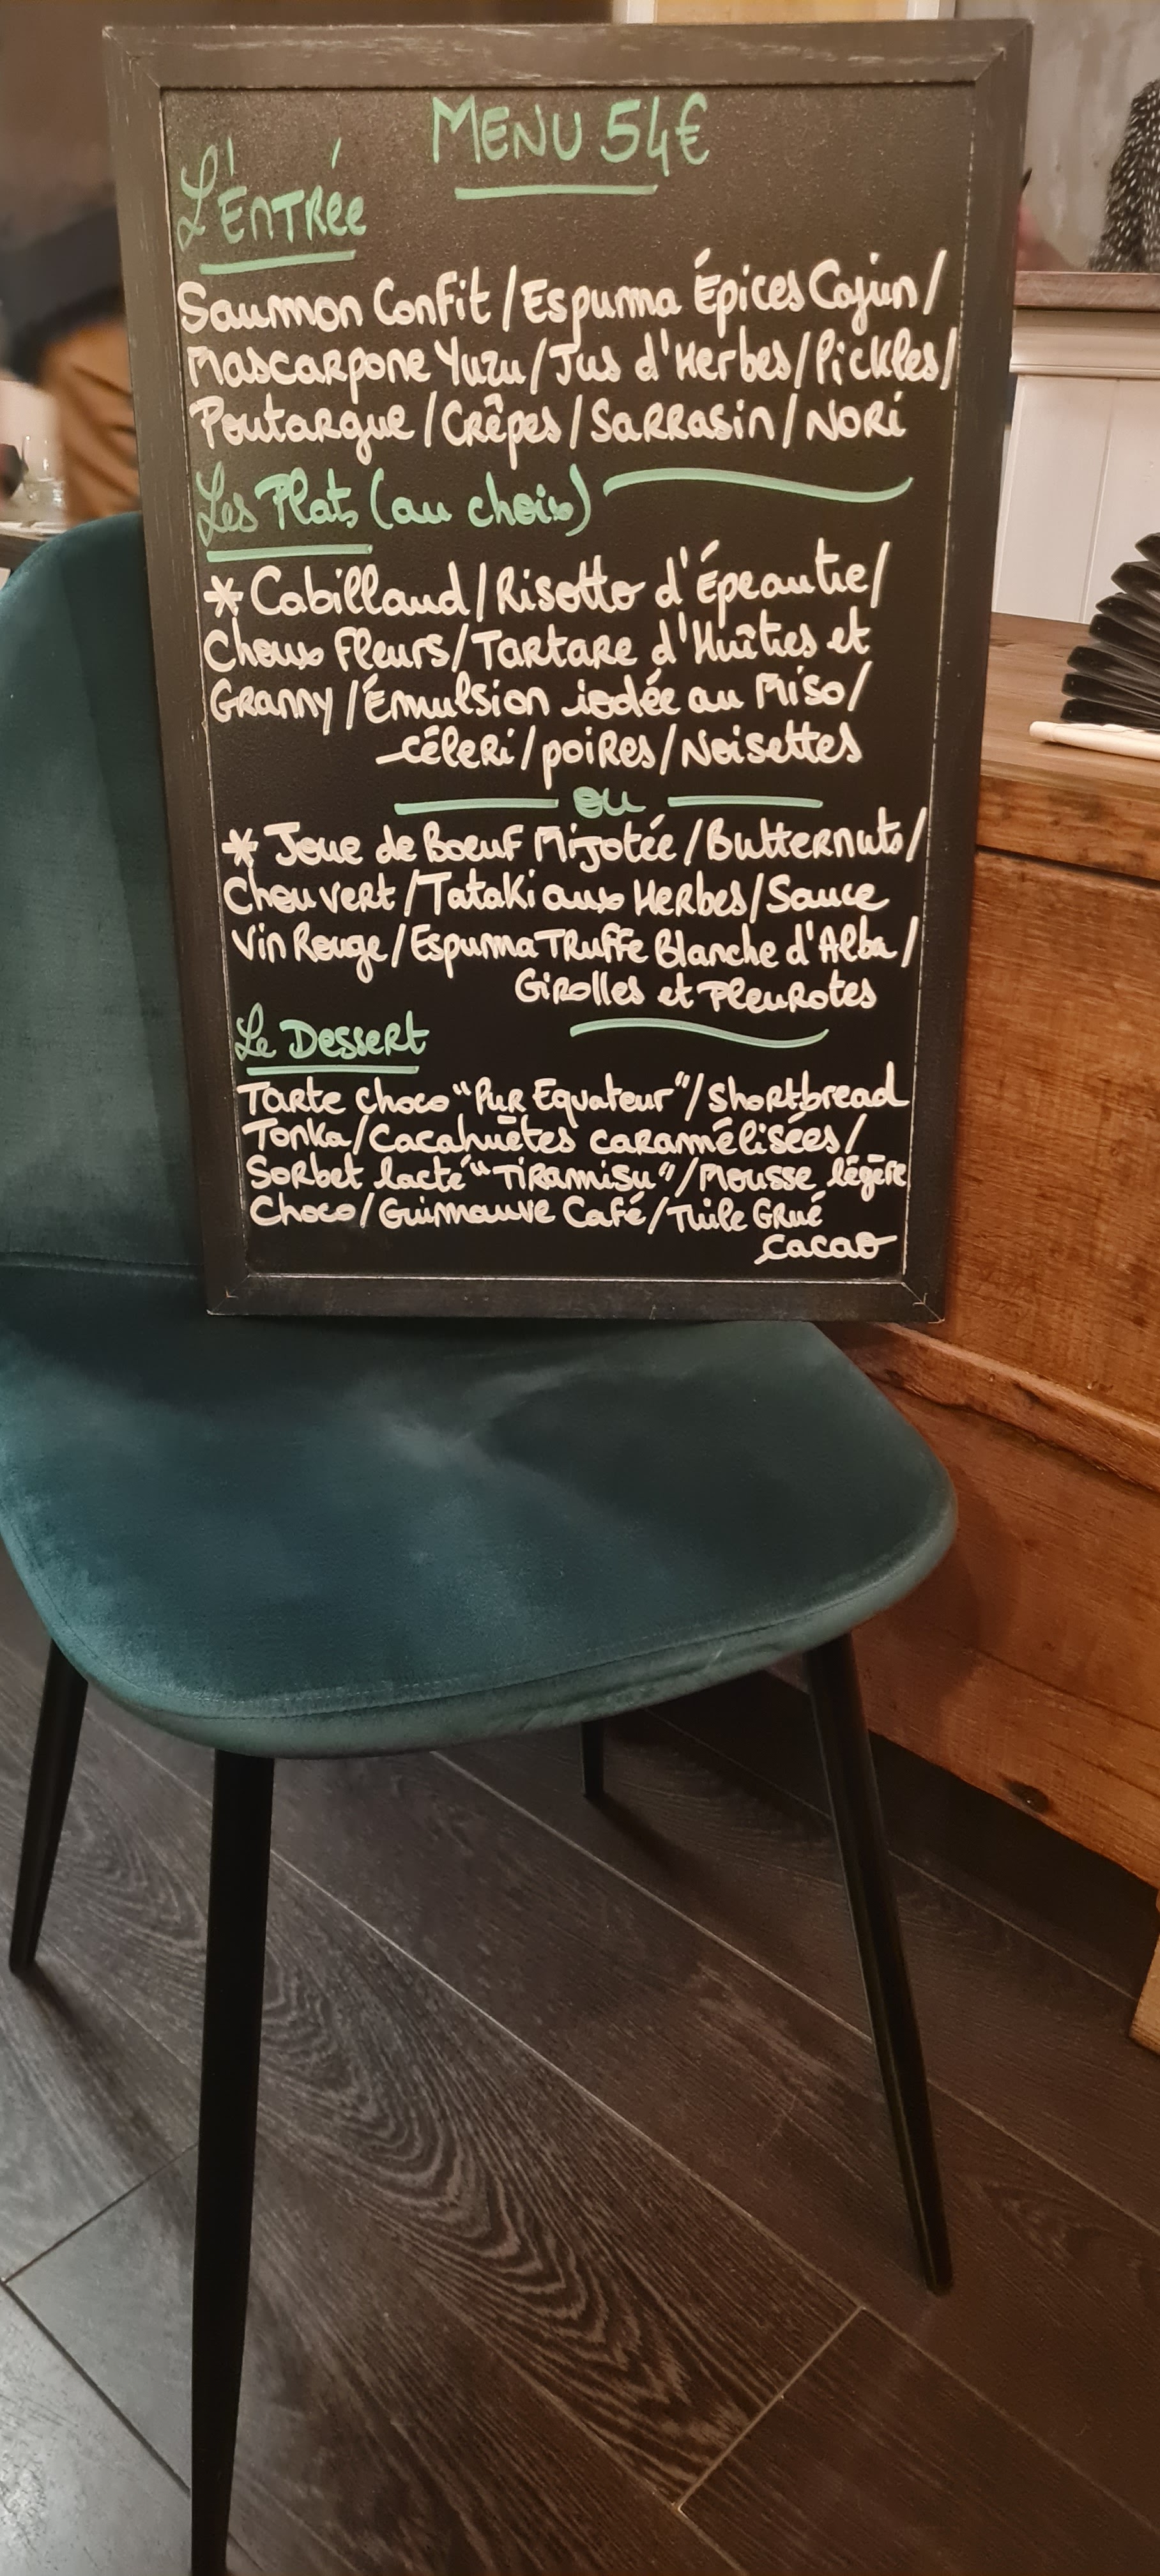 MENU 54€
L'Entrée
Saumon Confit / Espuma Épices Cajun /
Mascarpone Yuzu / Jus d'Herbes / Pickles /
Poutargue / Crêpes / Sarrasin / Nori
Les Plats (au choix)
* Cabillaud / Risotto d'Épeautre /
Choux Fleurs / Tartare d'Huîtres et
Granny / Émulsion iodée au Miso /
céleri / poires / Noisettes
ou
* Joue de Boeuf Mijotée / Butternuts /
Chou vert / Tataki aux Herbes / Sauce
Vin Rouge / Espuma Truffe Blanche d'Alba /
Girolles et Pleurotes
Le Dessert
Tarte choco "Pur Equateur" / Shortbread
Tonka / Cacahuètes caramélisées /
Sorbet lacté "Tiramisu" / Mousse légère
Choco / Guimauve Café / Tuile Grué
cacao